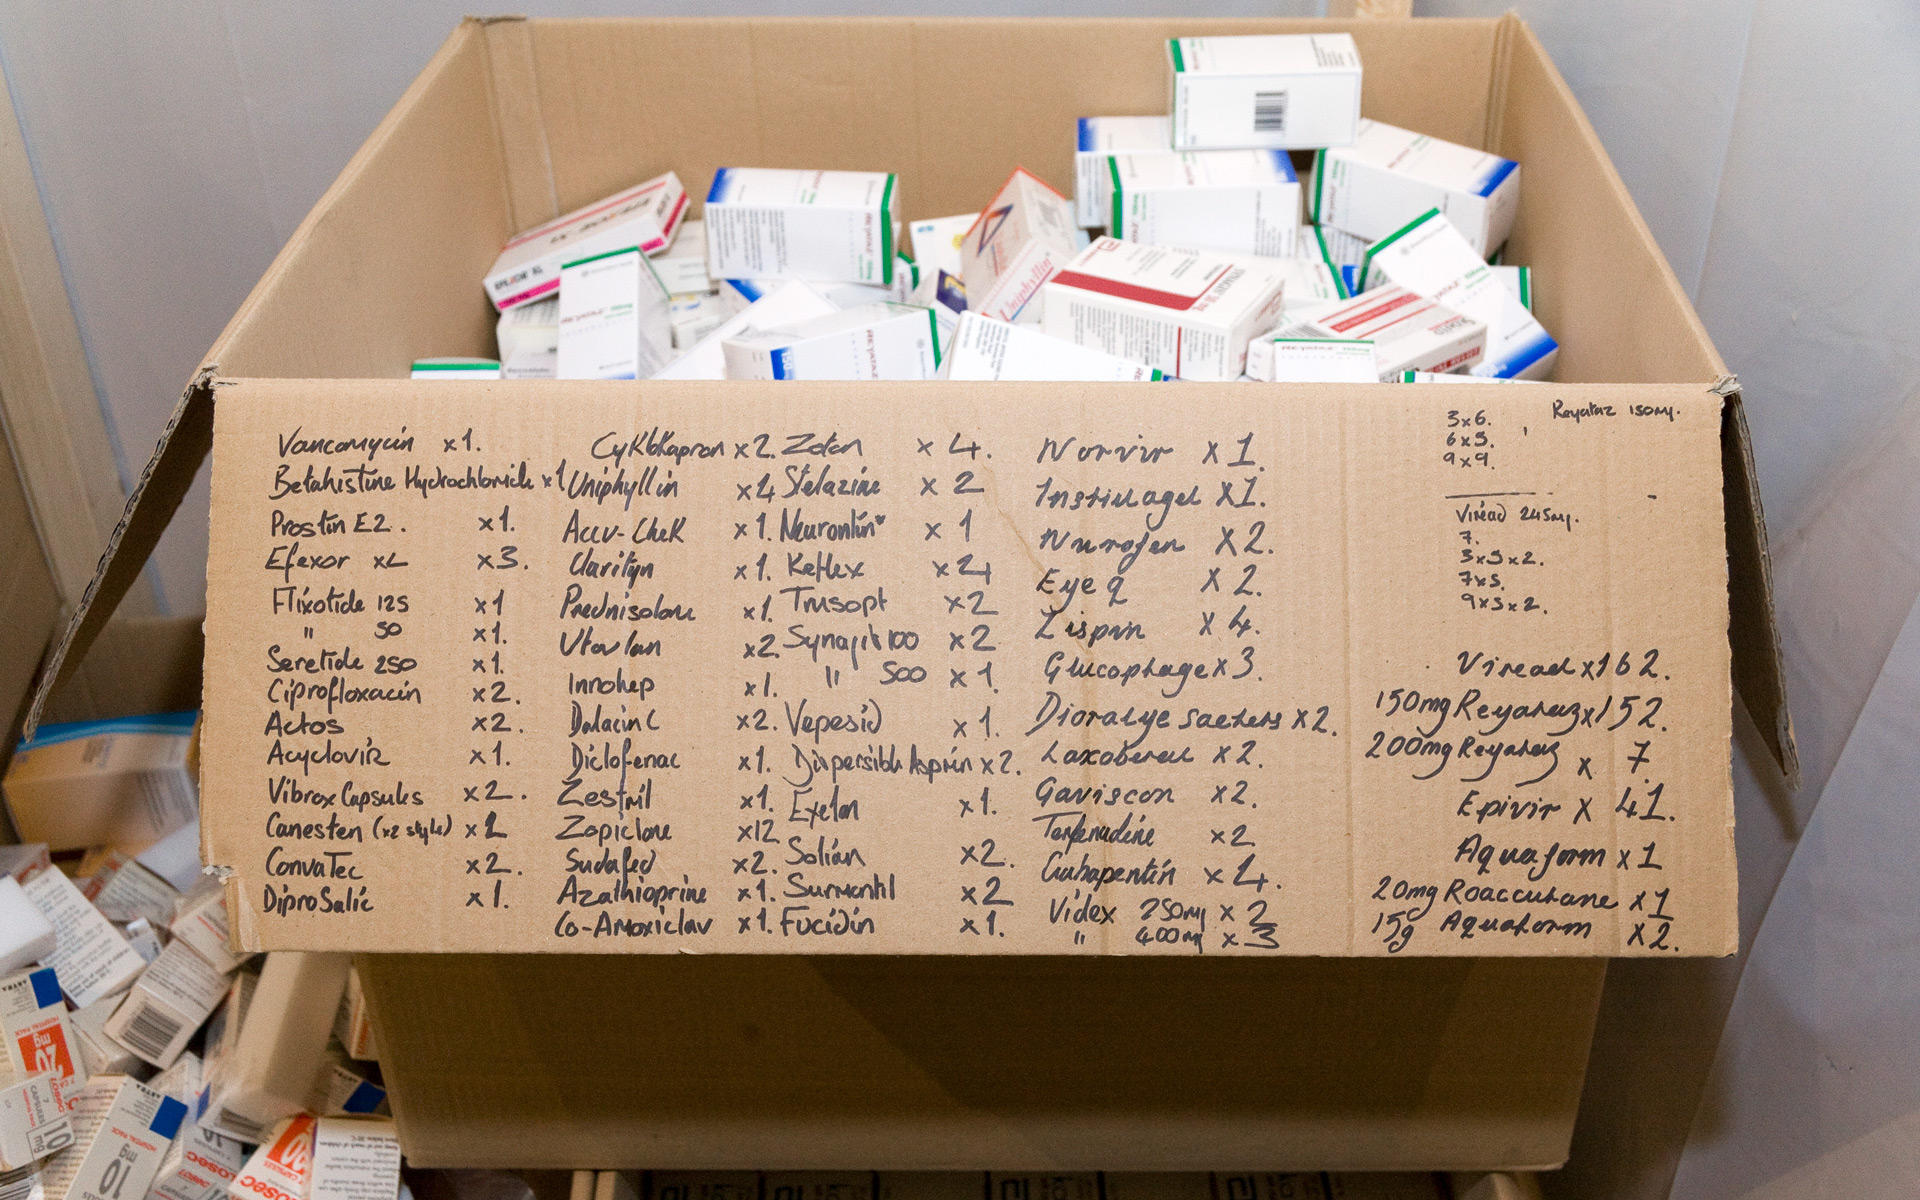 Vancomycin x1.
Betahistine Hydrochloride x1
Prostin E2. x1.
Efexor XL x3.
Flixotide 125 x1
" 50 x1.
Seretide 250 x1.
Ciprofloxacin x2.
Actos x2.
Acyclovir x1.
Vibrox Capsules x2.
Canesten (x2 style) x1
ConvaTec x2.
DiproSalic x1.
Cyklokapron x2.
Uniphyllin x4
Accu-Chek x1.
Clarityn x1.
Prednisolone x1.
Utovlan x2.
Innohep x1.
Dalacin C x2.
Diclofenac x1.
Zestril x1.
Zopiclone x12
Sudafed x2.
Azathioprine x1.
Co-Amoxiclav x1.
Zoton x4.
Stelazine x2
Neurontin x1
Keflex x4
Trusopt x2
Synagis 100 x2
" 500 x1.
Vepesid x1.
Dispersible Asprin x2.
Exelon x1.
Solian x2.
Surmontil x2
Fucidin x1.
Norvir x1.
Instillagel x1.
Nurofen x2.
Eye q x2.
Zispin x4.
Glucophage x3.
Dioralye sachets x2.
Laxoberal x2.
Gaviscon x2.
Terfenadine x2
Gabapentin x4.
Videx 250mg x2
" 400mg x3
3x6. Reyataz 150mg.
6x5.
9x9.
Viread 245mg.
7.
3x3x2.
7x5.
9x5x2.
Viread x162.
150mg Reyataz x152.
200mg Reyataz x 7.
Epivir x 41.
Aquaform x1
20mg Roaccutane x1
15g Aquaform x2.
Uniphyllin
REYATAZ
HOSPITAL PACK
10
mg
LOSEC